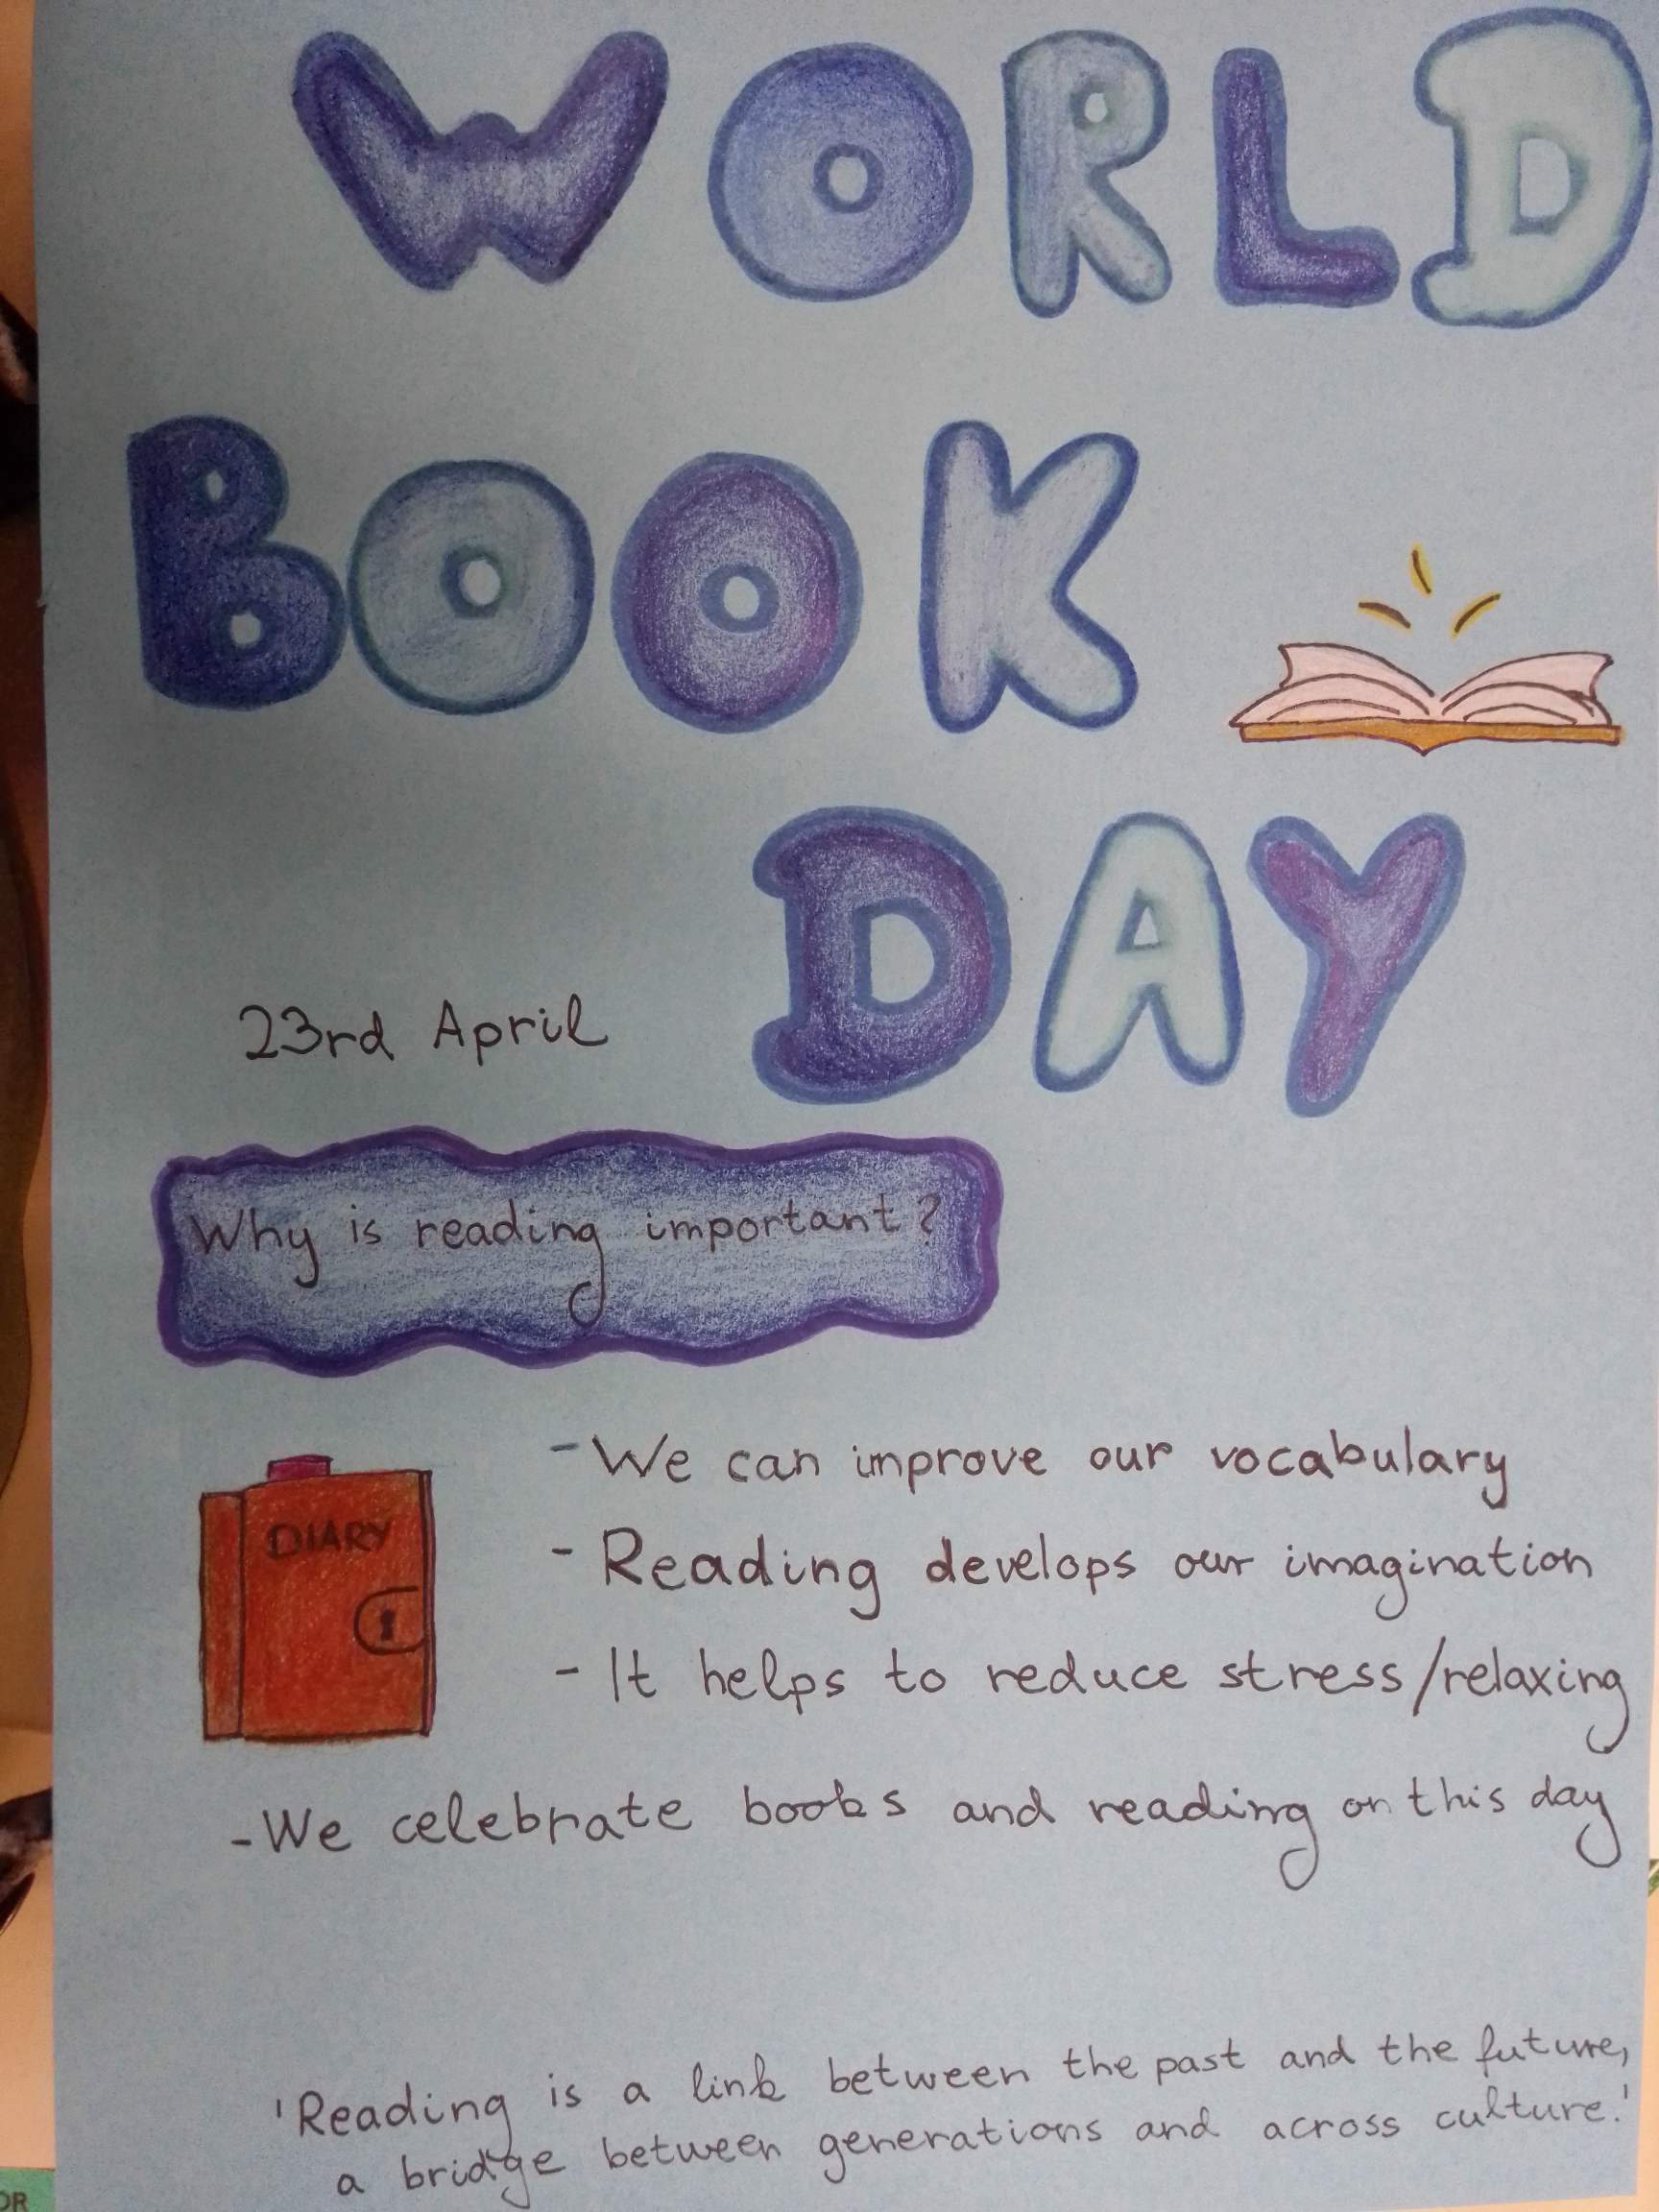 WORLD
BOOK
DAY
23rd April
Why is reading important?
DIARY
- We can improve our vocabulary
- Reading develops our imagination
- It helps to reduce stress/relaxing
- We celebrate books and reading on this day
'Reading is a link between the past and the future,
a bridge between generations and across culture.'
OR